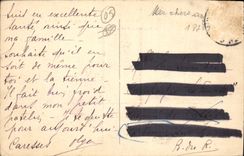 suis en excellente
santé ainsi que
ma famille.
Souhaite qu'il en
soit de même pour
toi et la tienne
il fait bien froid
dans mon petit
patelin, je te quitte
pour aujourd'hui.
Caresses Olga
05
B. du R.